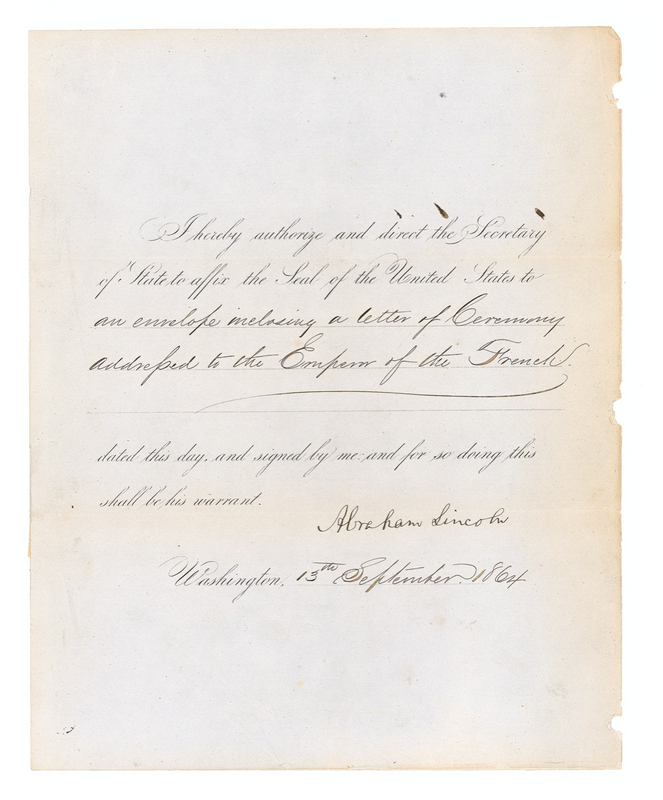 I hereby authorize and direct the Secretary
of State to affix the Seal of the United States to
an envelope inclosing a letter of Ceremony
addressed to the Emperor of the French.
dated this day, and signed by me: and for so doing this
shall be his warrant.
Abraham Lincoln
Washington, 13th September 1864